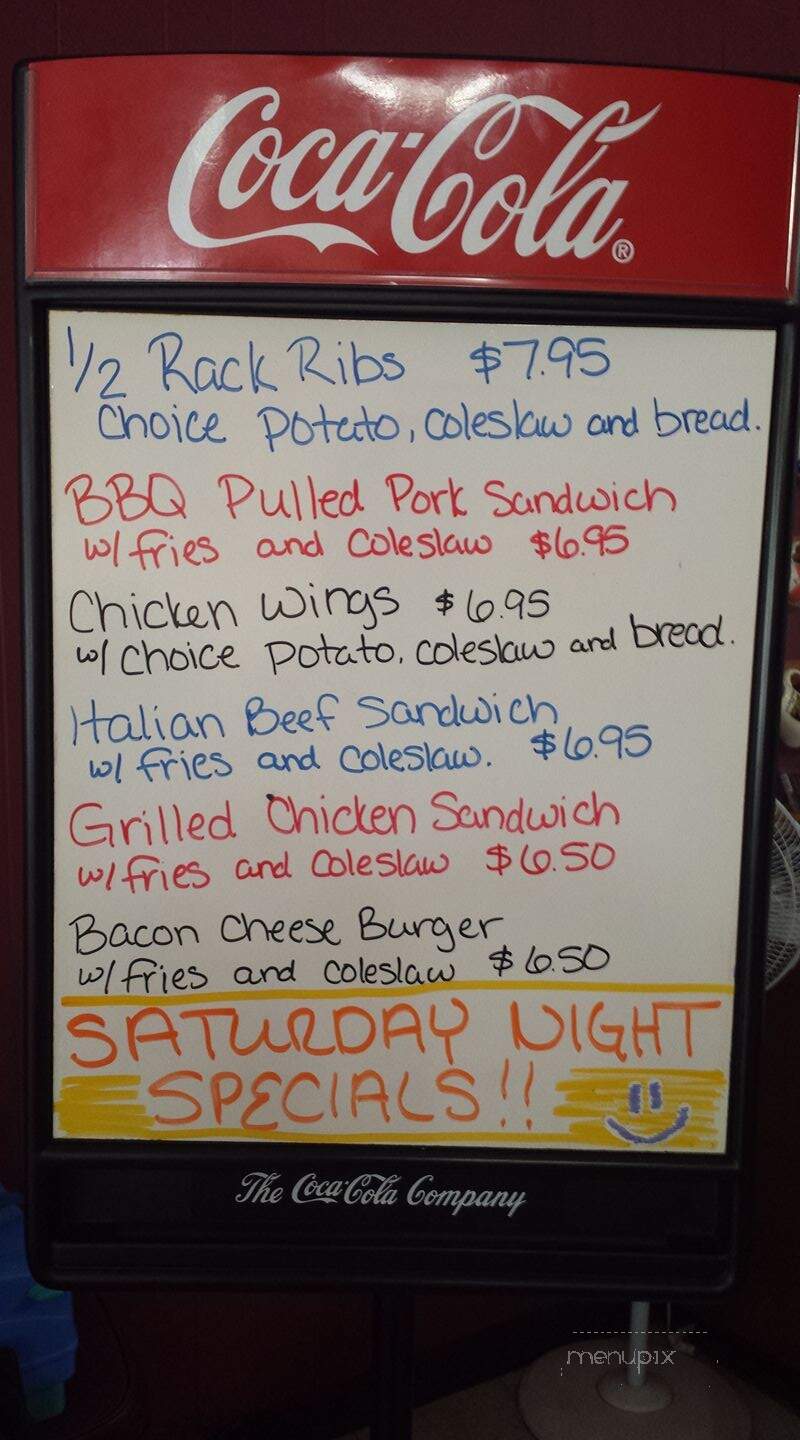 Coca-Cola®
1/2 Rack Ribs $7.95
Choice Potato, Coleslaw and bread.
BBQ Pulled Pork Sandwich
w/ fries and Coleslaw $6.95
Chicken Wings $6.95
w/ Choice Potato, Coleslaw and bread.
Italian Beef Sandwich
w/ fries and Coleslaw. $6.95
Grilled Chicken Sandwich
w/ fries and Coleslaw $6.50
Bacon Cheese Burger
w/ fries and Coleslaw $6.50
SATURDAY NIGHT
SPECIALS!!
The Coca-Cola Company
menupix